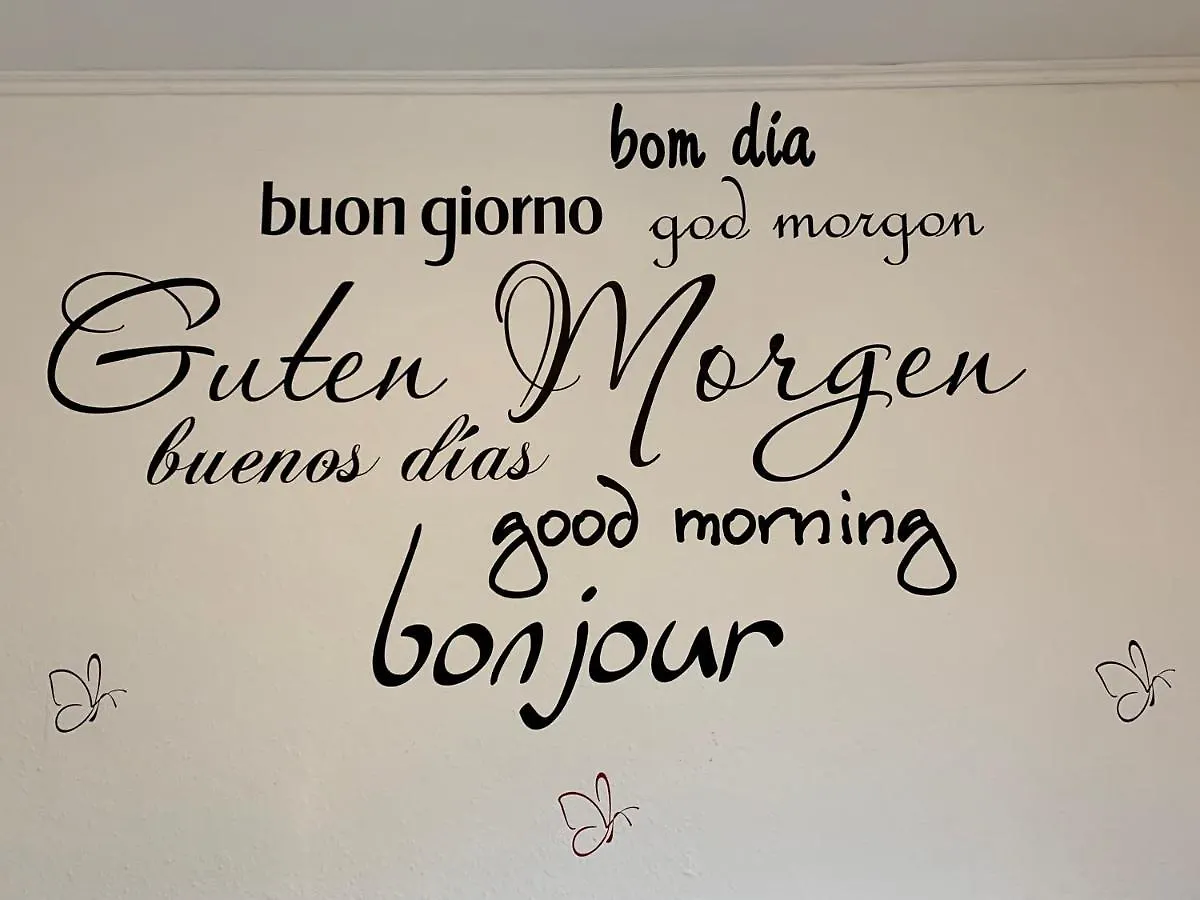 bom dia
buon giorno
god morgon
Guten Morgen
buenos días
good morning
bonjour